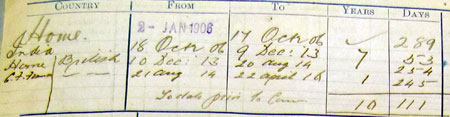 COUNTRY FROM TO YEARS DAYS
Home. 2- JAN 1906 17 Oct 06 ✓ 289
India 18 Oct 06 9 Dec: 13 7 53
Home British 10 Dec: 13 20 aug 14 254
21 aug 14 22 april 16 1 245
To date prior to
10 111